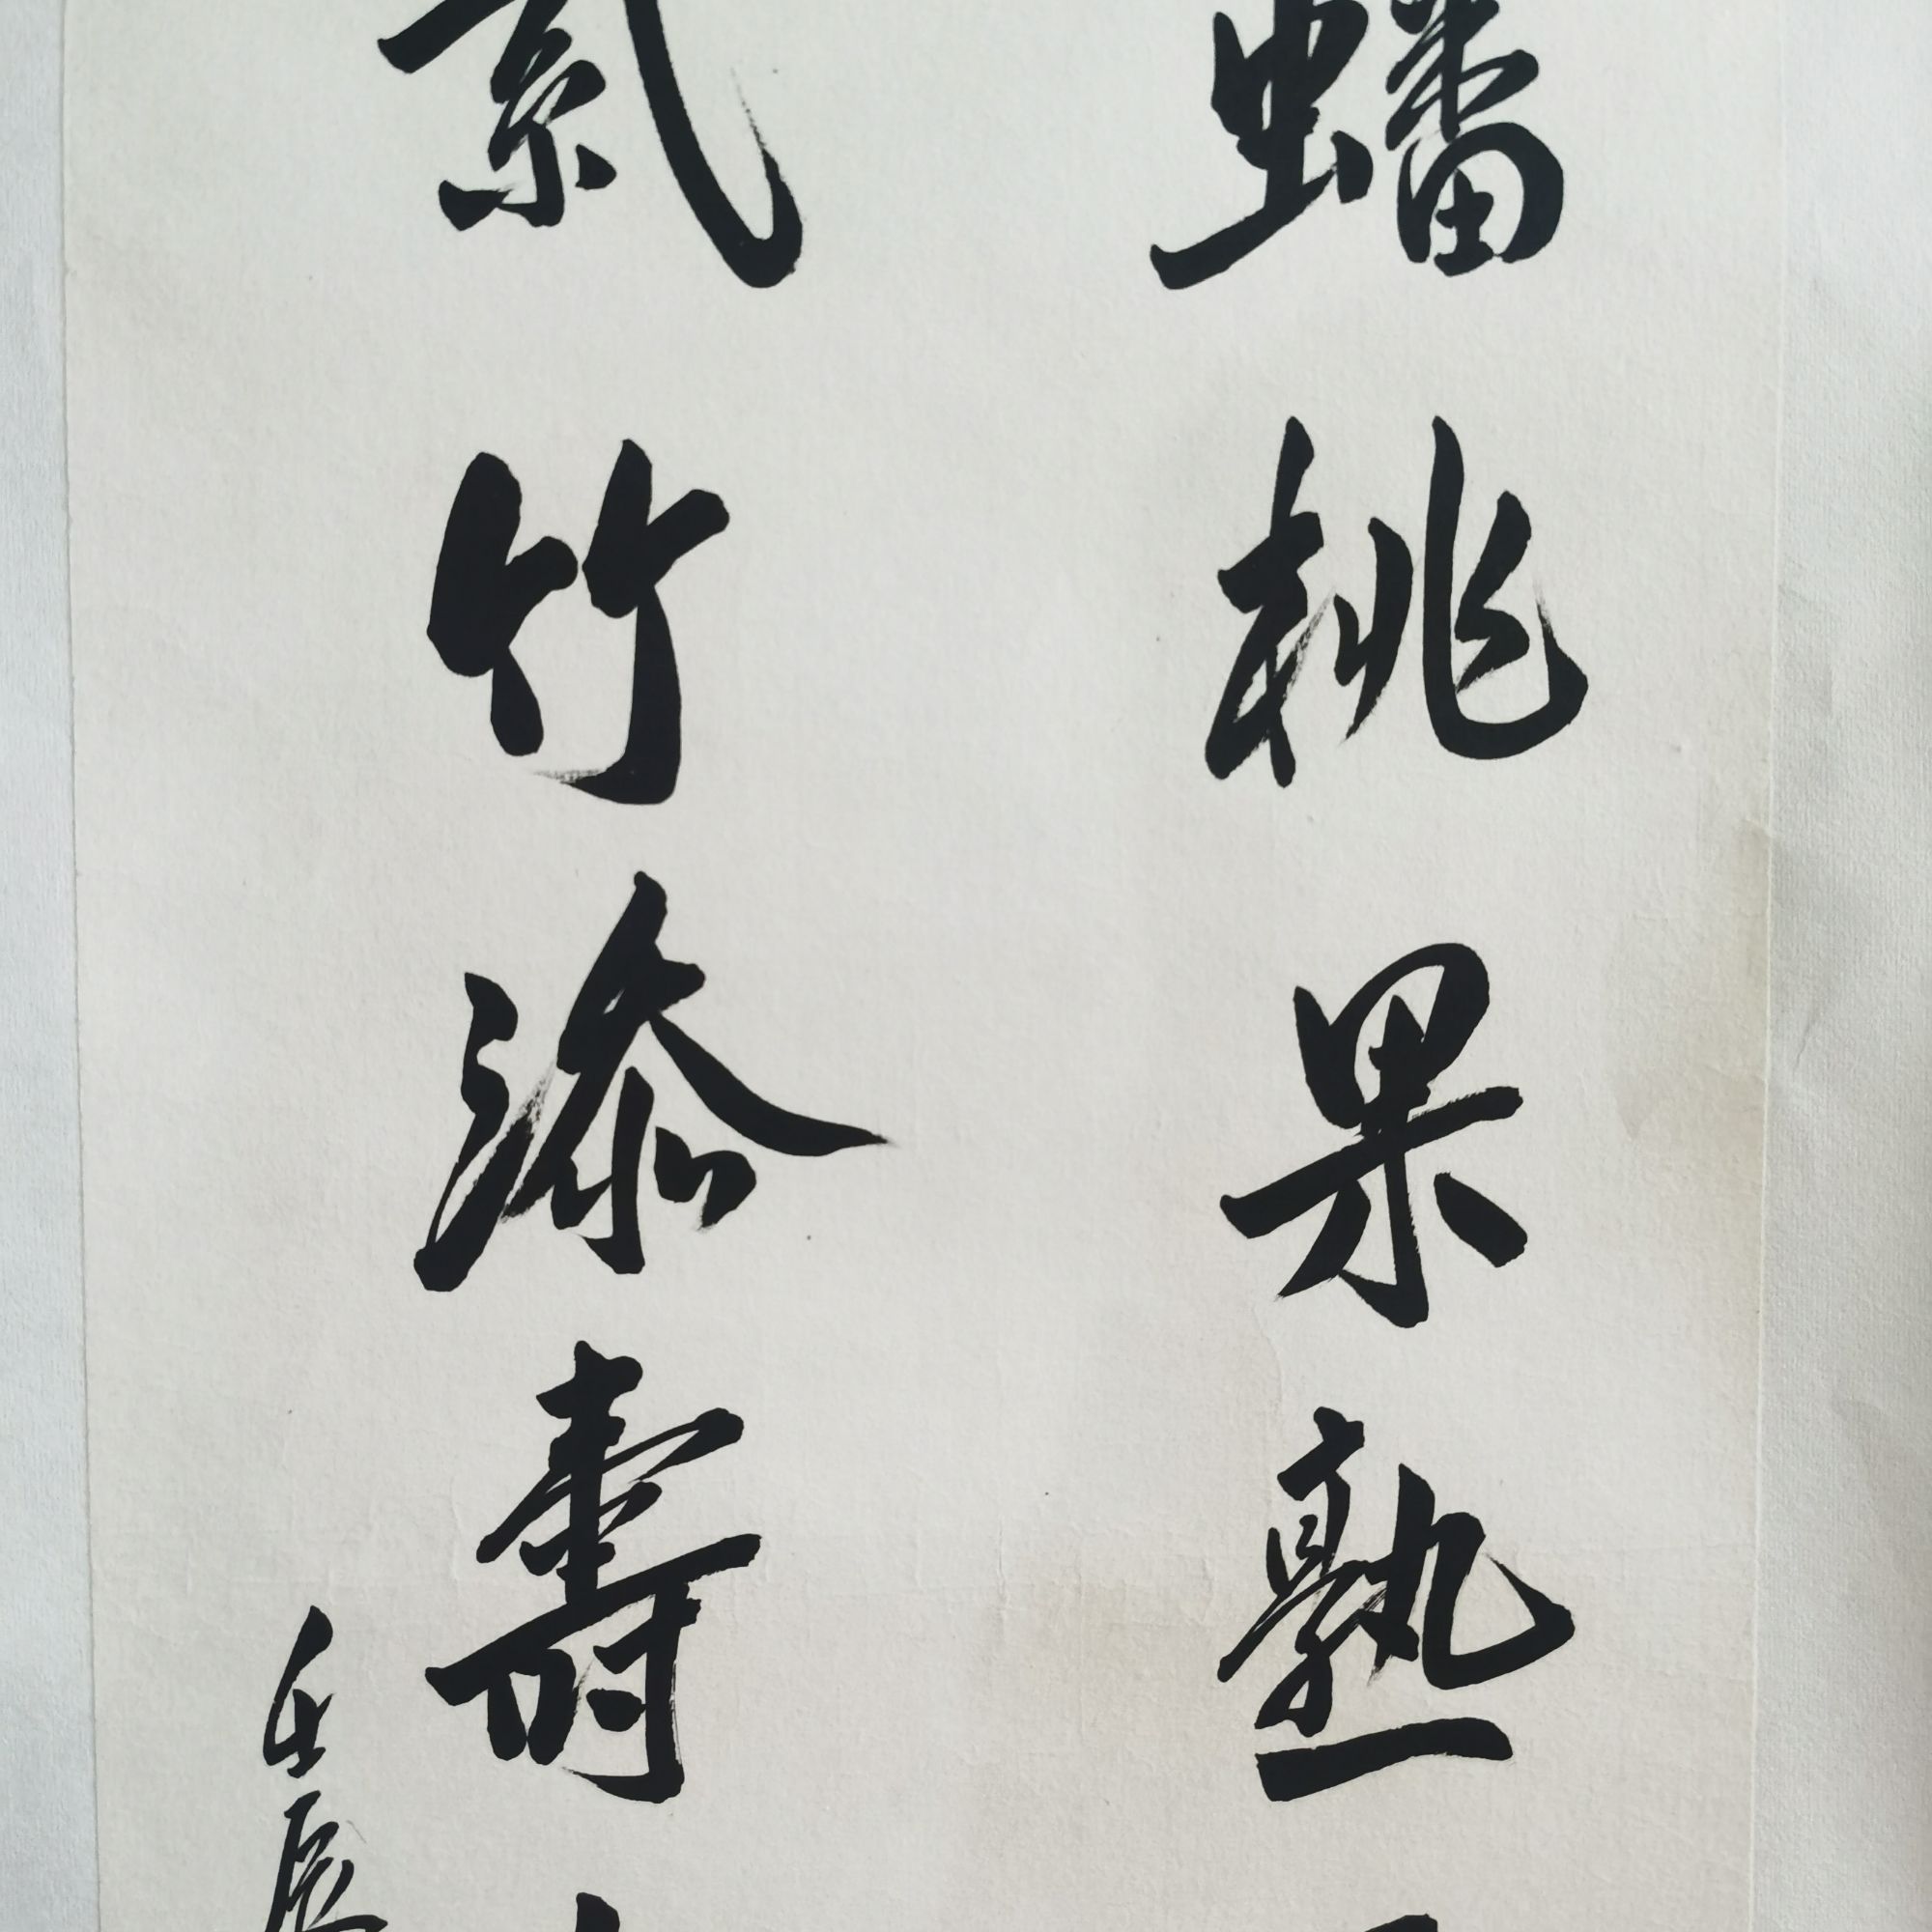 蟠桃果熟
紫竹添壽
壬辰